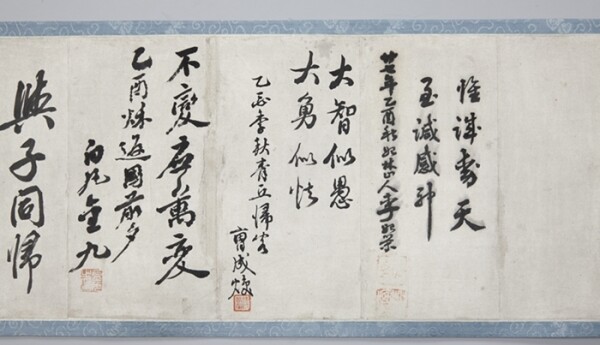 惟誠動天
至誠感神
廿七年乙酉秋 山人李始榮
大智似愚
大勇似怯
乙酉季秋青丘歸客
曺成煥
不變應萬變
乙酉秋返國前夕
白凡金九
與子同歸